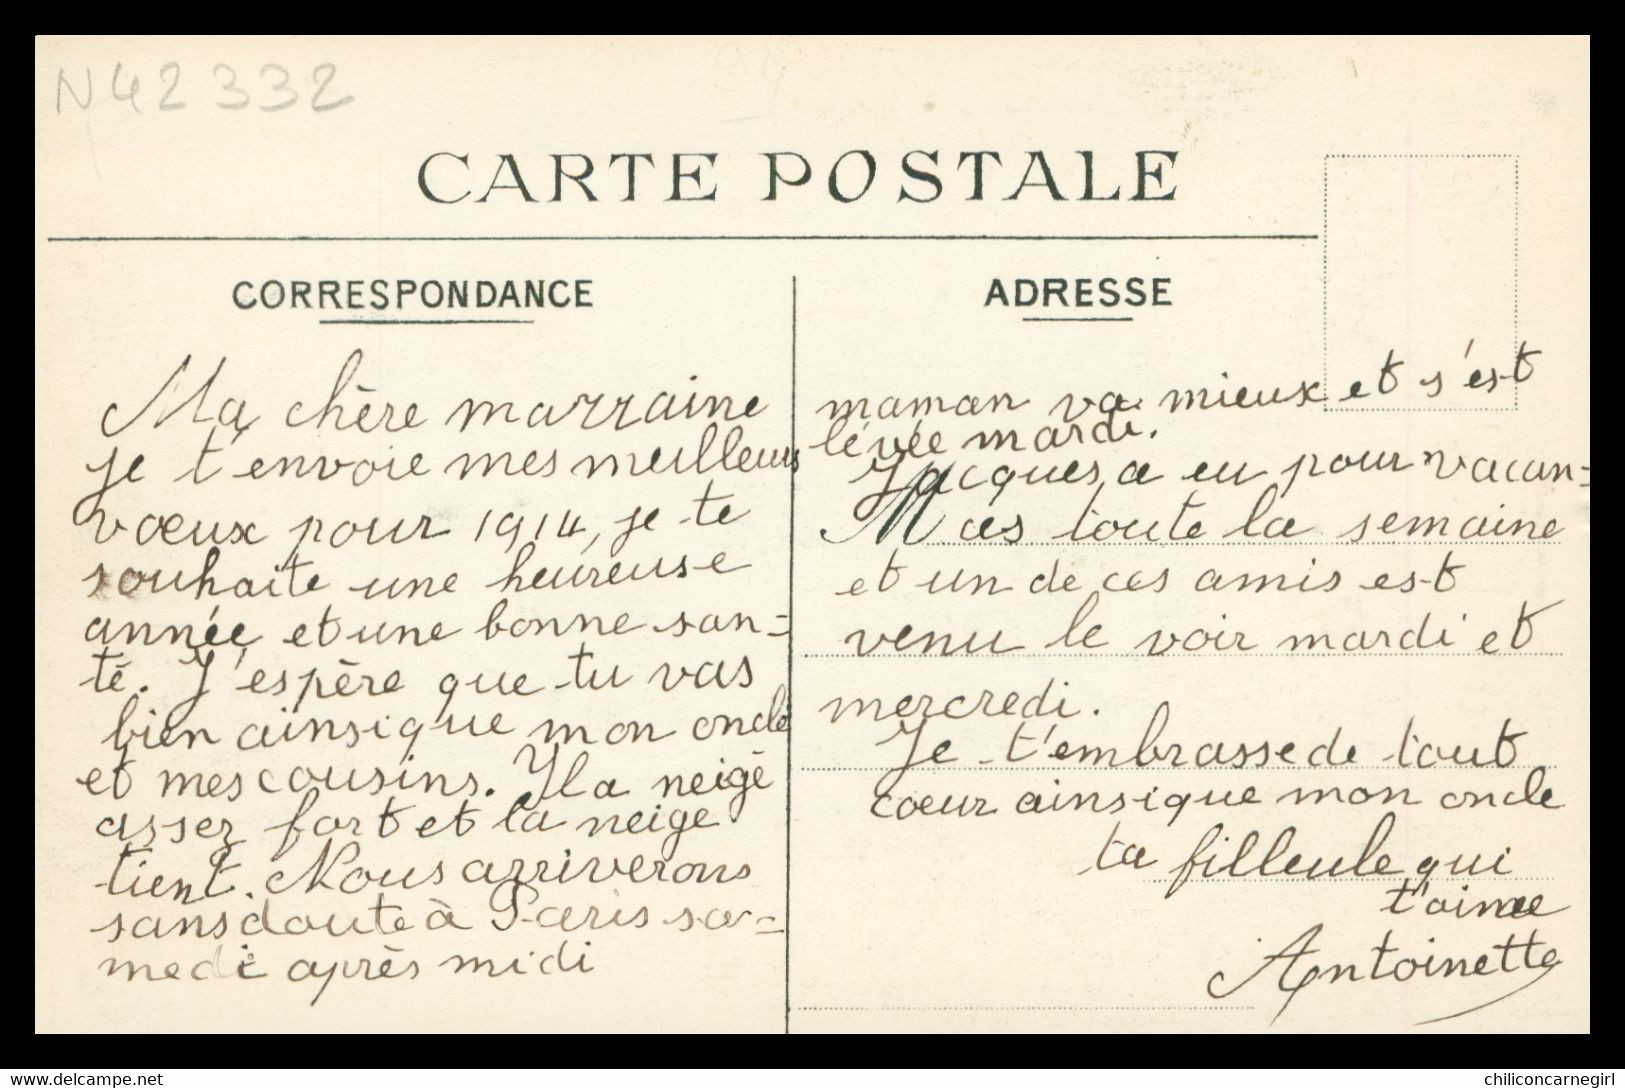 N42332
CARTE POSTALE
CORRESPONDANCE
Ma chère marraine
je t'envoie mes meilleurs
vœux pour 1914, je te
souhaite une heureuse
année et une bonne san=
té. J'espère que tu vas
bien ainsi que mon oncle
et mes cousins. Il a neigé
assez fort et la neige
tient. Nous arriverons
sans doute à Paris sa=
medi après midi
ADRESSE
maman va mieux et s'est
levée mardi.
Jacques a eu pour vacan=
ces toute la semaine
et un de ces amis est
venu le voir mardi et
mercredi.
Je t'embrasse de tout
cœur ainsi que mon oncle
ta filleule qui
t'aime
Antoinette
www.delcampe.net
chiliconcarnegirl